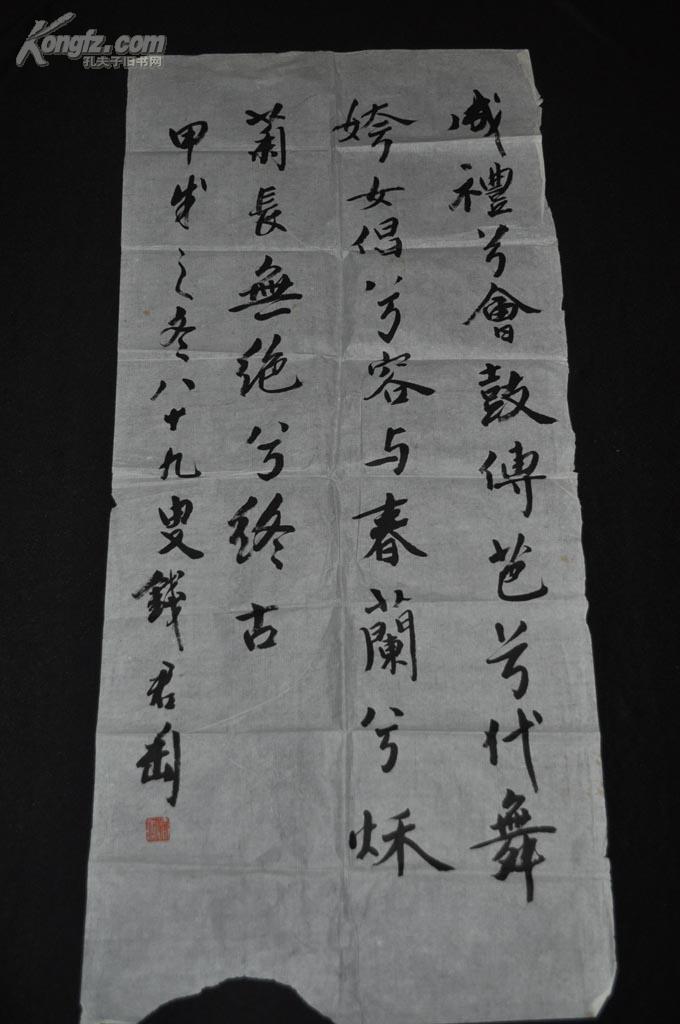 Kongfz.com
孔夫子旧书网
成禮兮會鼓傳芭兮代舞
姱女倡兮容与春蘭兮秌
菊長無絶兮終古
甲戌之冬八十九叟錢君匋